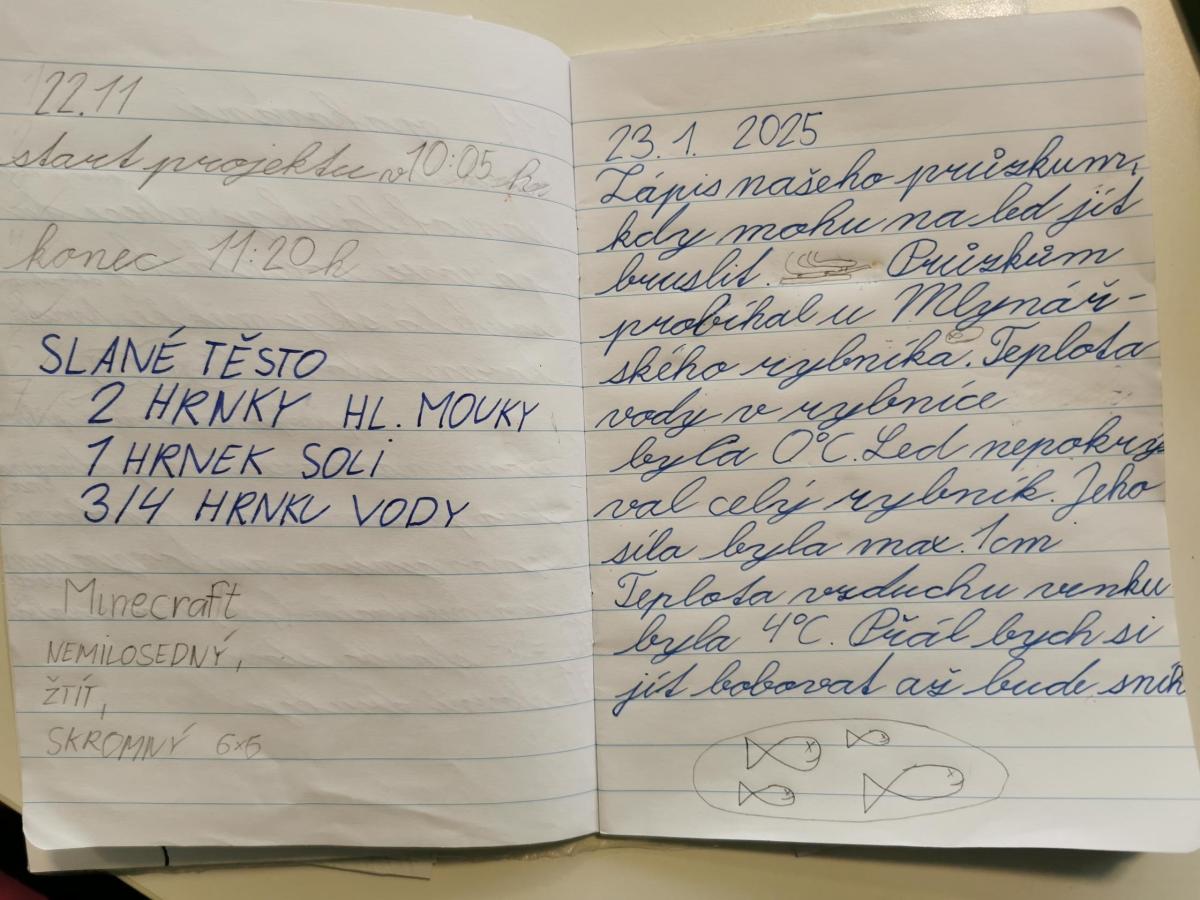 22.11
start projektu v 10:05 h
konec 11:20 h
SLANÉ TĚSTO
2 HRNKY HL. MOUKY
1 HRNEK SOLI
3/4 HRNKU VODY
Minecraft
NEMILOSEDNÝ,
ŽTÍT,
SKROMNÝ 6x6
23.1. 2025
Zápis našeho průzkum,
kdy mohu na led jít
bruslit. Průzkům
probíhal u Mlynář-
ského rybníka. Teplota
vody v rybníce
byla 0°C. Led nepokrý
val celý rybník. Jeho
síla byla max. 1cm
Teplota vzduchu venku
byla 4°C. Přál bych si
jít bobovat až bude sníh